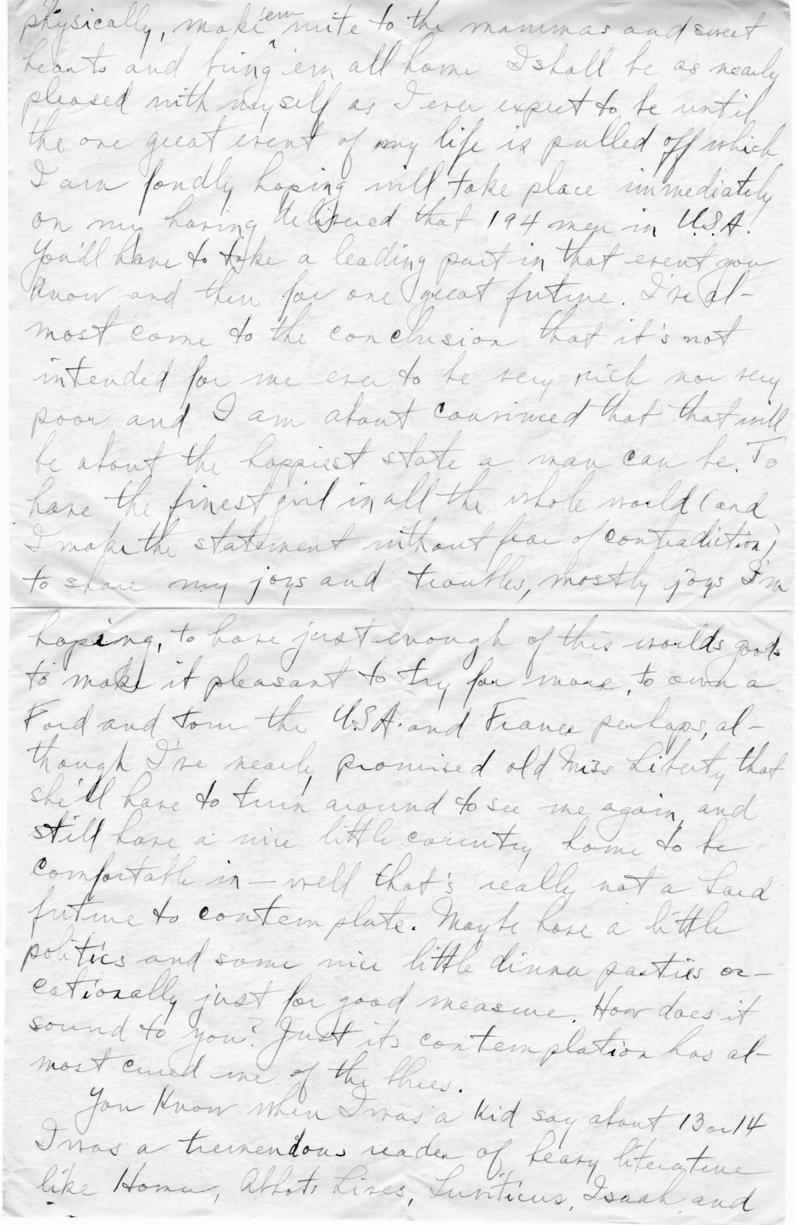 physically, make 'em write to the mammas and sweet
hearts and bring 'em all home I shall be as nearly
pleased with myself as I ever expect to be until
the one great event of my life is pulled off which
I am fondly hoping will take place immediately
on my having delivered that 194 men in U.S.A.
You'll have to take a leading part in that event you
know and then for one great future. I've al-
most come to the conclusion that it's not
intended for me ever to be very rich nor very
poor and I am about convinced that that will
be about the happiest state a man can be. To
have the finest girl in all the whole world (and
I make the statement without fear of contradiction)
to share my joys and troubles, mostly joys I'm
hoping, to have just enough of this worlds goods
to make it pleasant to try for more, to own a
Ford and tour the U.S.A. and France perhaps, al-
though I've nearly promised old Miss Liberty that
she'll have to turn around to see me again, and
still have a nice little country home to be
comfortable in — well that's really not a hard
future to contemplate. Maybe have a little
politics and some nice little dinner parties oc-
cationally just for good measure. How does it
sound to you? Just its contemplation has al-
most cured me of the blues.
You know when I was a kid say about 13 or 14
I was a tremendous reader of heavy literature
like Homer, Abbots Lives, Leviticus, Isaah, and